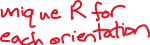 unique R for
each orientation